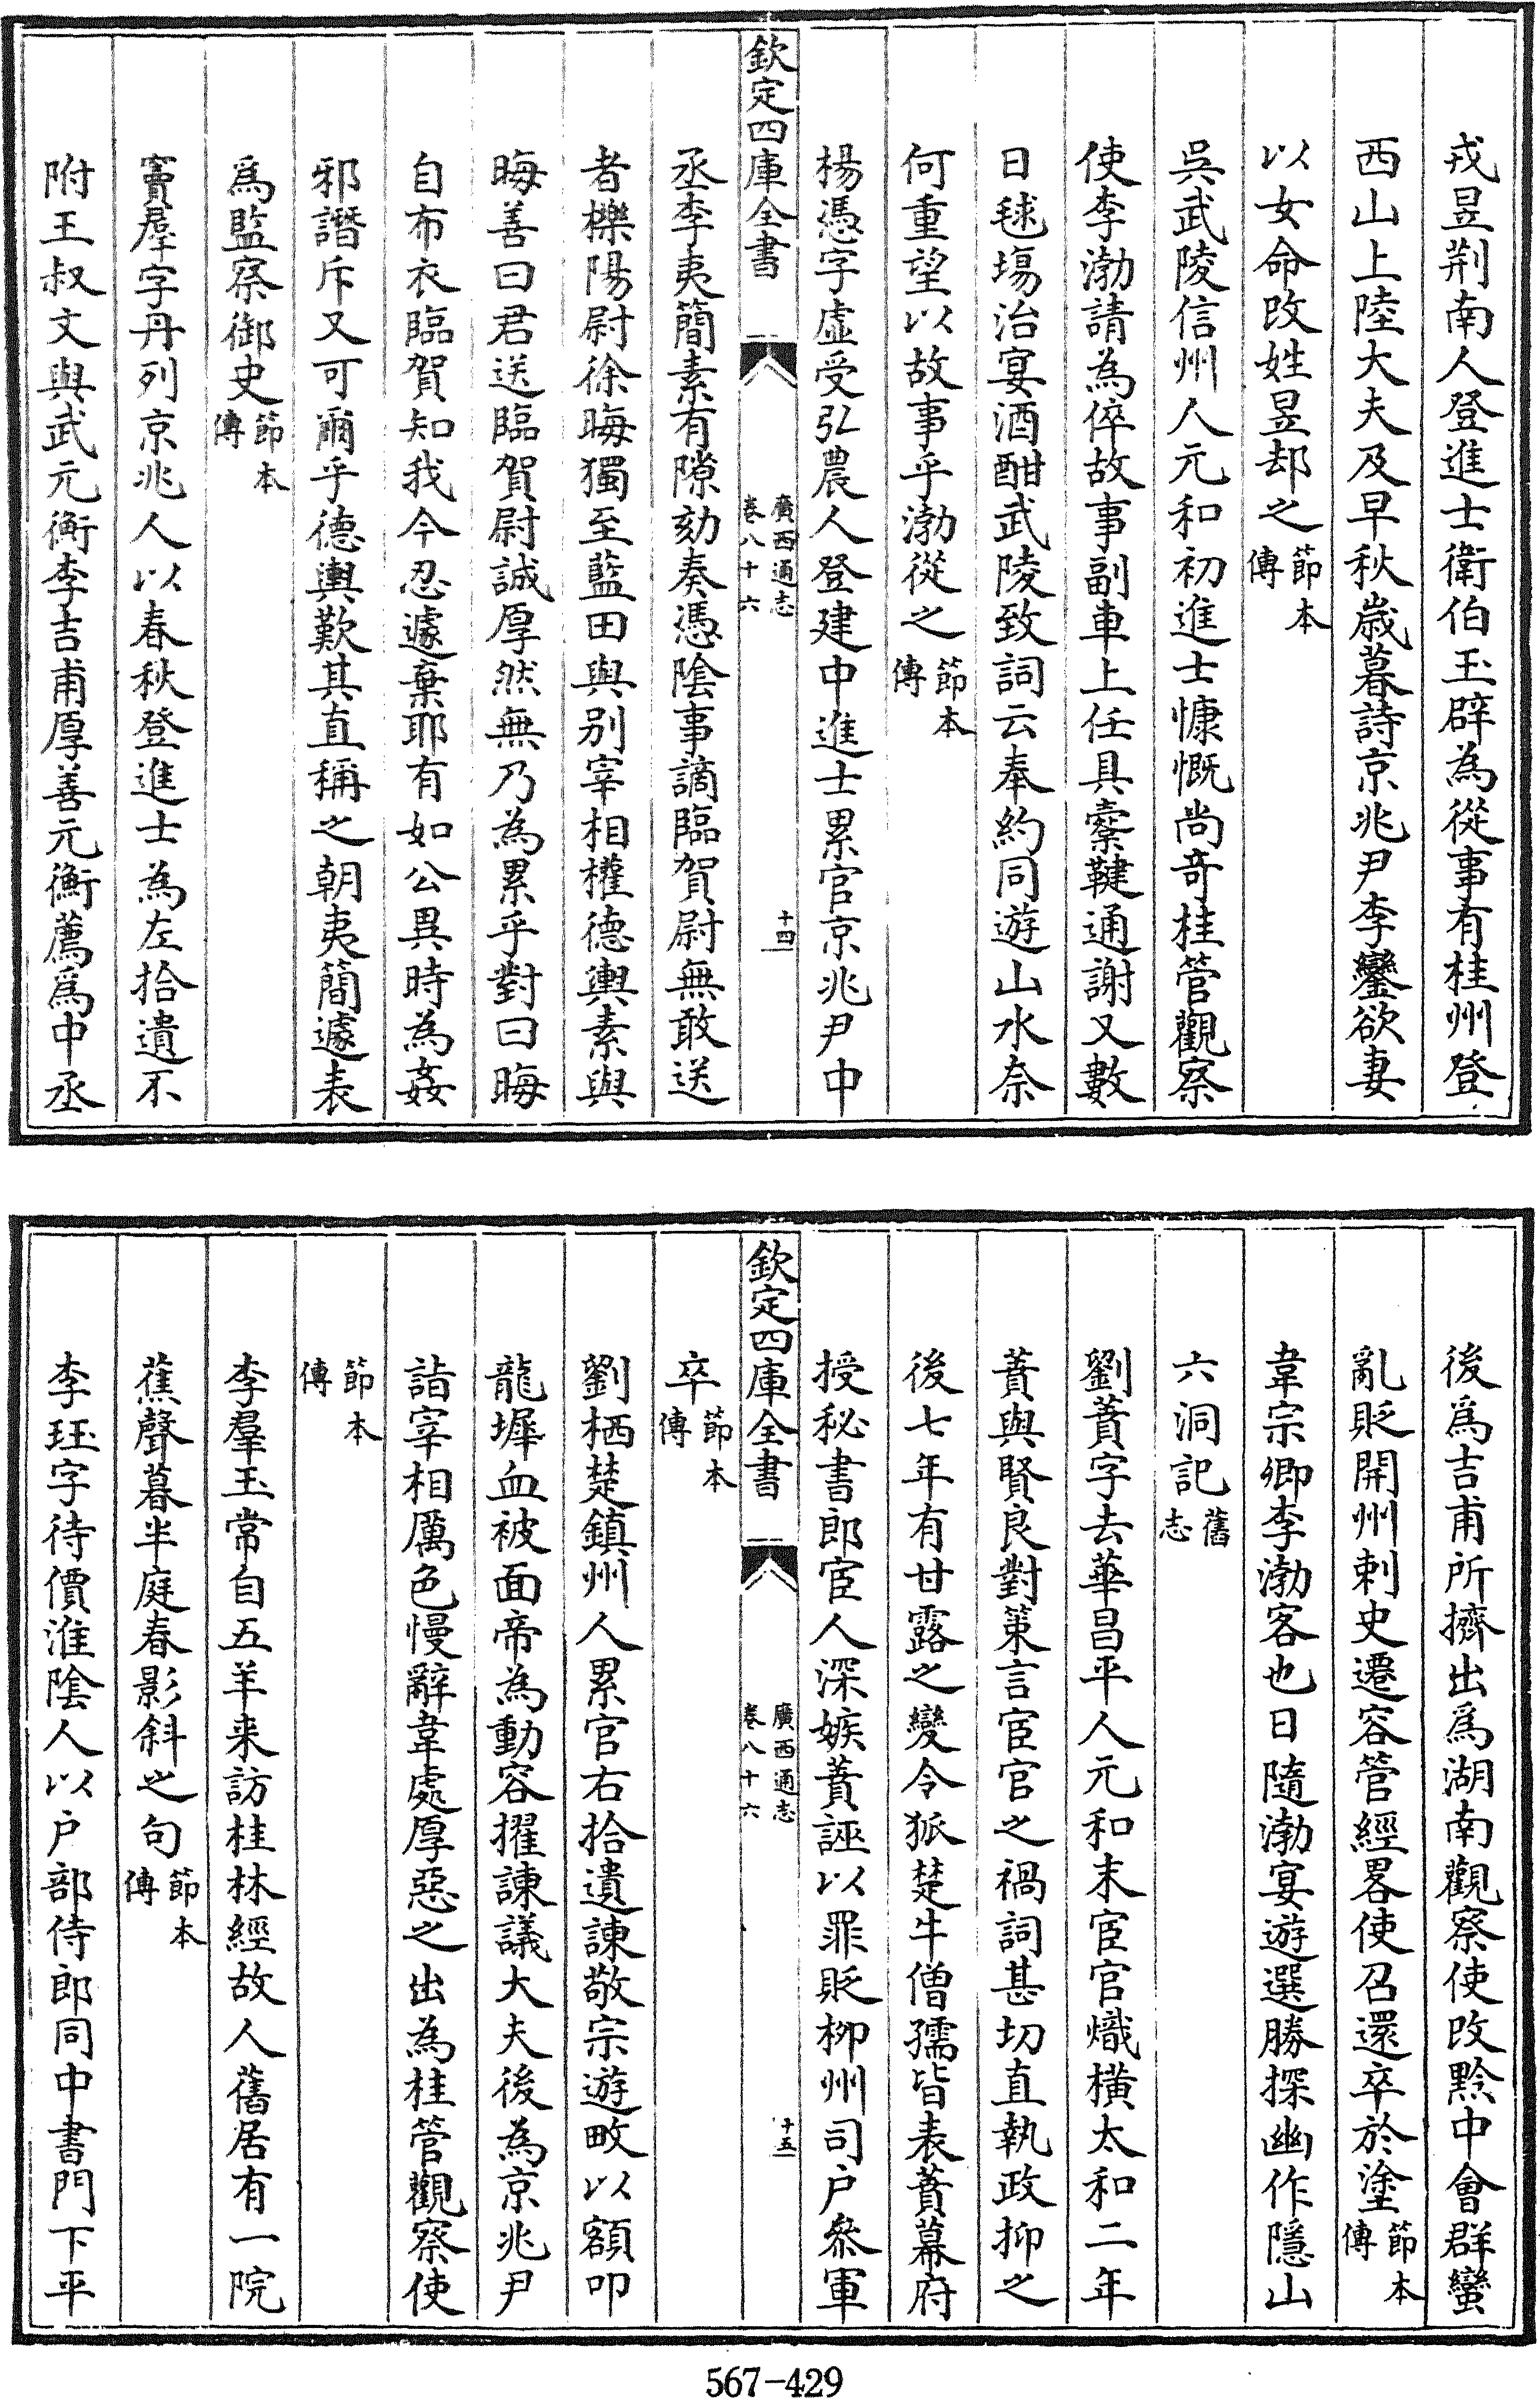 戎昱荆南人登進士衛伯玉辟為從事有桂州登
西山上陸大夫及早秋歲暮詩京兆尹李鑾欲妻
以女命改姓昱却之節本傳
吳武陵信州人元和初進士慷慨尚奇桂管觀察
使李渤請為倅故事副車上任具櫜鞬通謝又數
日毬場治宴酒酣武陵致詞云奉約同遊山水奈
何重望以故事乎渤從之節本傳
楊憑字虛受弘農人登建中進士累官京兆尹中
欽定四庫全書 廣西通志 卷八十六 十四
丞李夷簡素有隙劾奏憑陰事謫臨賀尉無敢送
者櫟陽尉徐晦獨至藍田與别宰相權德輿素與
晦善曰君送臨賀尉誠厚然無乃為累乎對曰晦
自布衣臨賀知我今忍遽棄耶有如公異時為姦
邪譖斥又可爾乎德輿歎其直稱之朝夷簡遽表
爲監察御史節本傳
竇羣字丹列京兆人以春秋登進士為左拾遺不
附王叔文與武元衡李吉甫厚善元衡薦爲中丞
後爲吉甫所擠出爲湖南觀察使改黔中會群蠻
亂貶開州刺史遷容管經畧使召還卒於塗節本傳
韋宗卿李渤客也日隨渤宴遊選勝探幽作隱山
六洞記舊志
劉蕡字去華昌平人元和末宦官熾橫太和二年
蕡與賢良對策言宦官之禍詞甚切直執政抑之
後七年有甘露之變令狐楚牛僧孺皆表蕡幕府
授秘書郎宦人深嫉蕡誣以罪貶柳州司户叅軍
欽定四庫全書 廣西通志 卷八十六 十五
卒節本傳
劉栖楚鎮州人累官右拾遺諫敬宗遊畋以額叩
龍墀血被面帝為動容擢諫議大夫後為京兆尹
詣宰相厲色慢辭韋處厚惡之出為桂管觀察使
節本傳
李羣玉常自五羊来訪桂林經故人舊居有一院
蕉聲暮半庭春影斜之句節本傳
李珏字待價淮陰人以户部侍郎同中書門下平
567-429